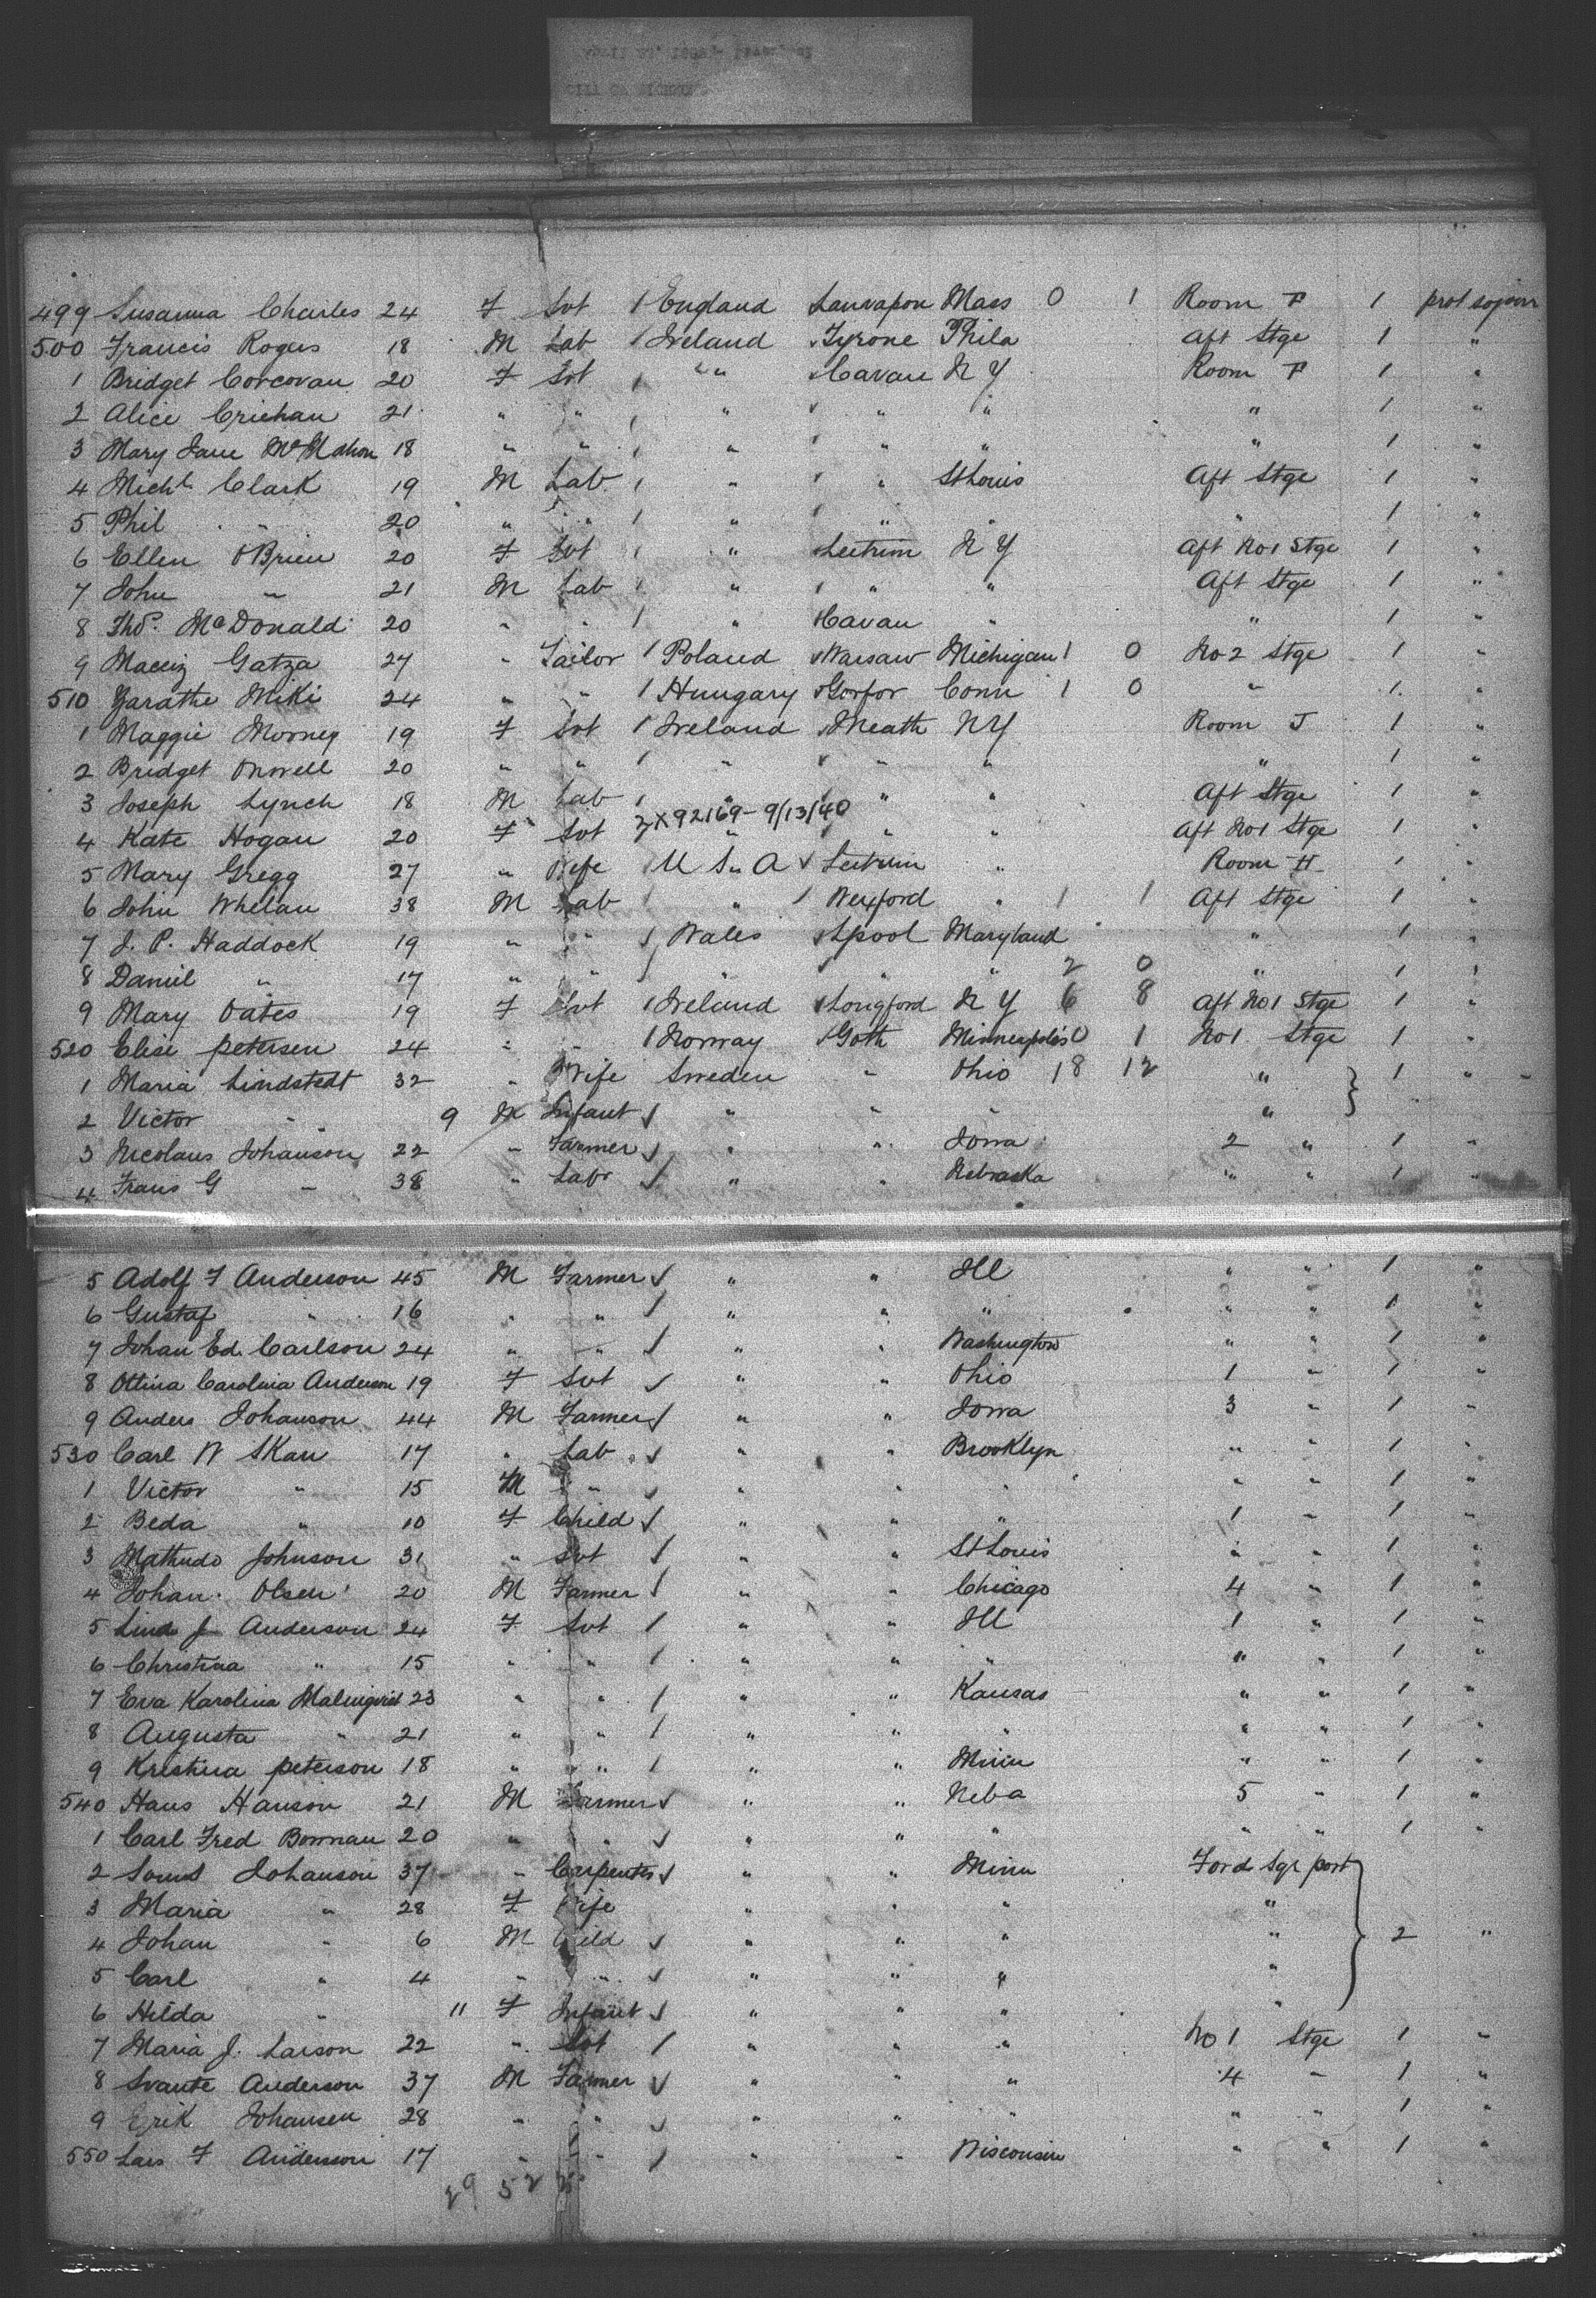 499 Susanna Charles 24 F Svt 1 England Mass 0 1 Room F 1 prot sojour
500 Francis Rogers 18 M Lab 1 Ireland Tyrone Phila Aft Stge 1 "
1 Bridget Corcoran 20 F Svt 1 " " Cavan N Y Room F 1 "
2 Alice Criehan 21 " " 1 " " " " 1 "
3 Mary Jane McMahon 18 " " 1 " " " " 1 "
4 Michl Clark 19 M Lab 1 " " St Louis Aft Stge 1 "
5 Phil " 20 " " 1 " " " " 1 "
6 Ellen OBrien 20 F Svt 1 " Leitrim N Y Aft No 1 Stge 1 "
7 John " 21 M Lab 1 " " " Aft Stge 1 "
8 Thos. McDonald 20 " " 1 " Cavan " " 1 "
9 Maciiz Gatza 27 " Tailor 1 Poland Warsaw Michigan 1 0 No 2 Stge 1 "
510 Miki 24 " " 1 Hungary Conn 1 0 " 1 "
1 Maggie Morney 19 F Svt 1 Ireland Meath NY Room J 1 "
2 Bridget 20 " " 1 " " " " 1 "
3 Joseph Lynch 18 M Lab 1 " " " Aft Stge 1 "
2X92169- 9/13/40
4 Kate Hogan 20 F Svt " " " Aft No 1 Stge 1 "
5 Mary Gregg 27 " Wife U S. A Leitrim " Room H 1 "
6 John Whelan 38 M Lab 1 " 1 Wexford " 1 1 Aft Stge 1 "
7 J. P. Haddock 19 " " Wales Lpool Maryland " 1 "
8 Daniel " 17 " " " " " 2 0 " 1 "
9 Mary Oates 19 F Svt 1 Ireland Longford N Y 6 8 Aft No 1 Stge 1 "
520 Elise petersen 24 " " 1 Norway Goth Minneapolis 0 1 No 1 Stge 1 "
1 Maria Lindstedt 32 " Wife Sweden " Ohio 18 12 " } 1 " "
2 Victor " 9 M Infant " " " "
3 Nicolaus Johanson 22 " Farmer " " Iowa 2 " 1 "
4 Frans G " 38 " Labr " " Nebraska " " 1 "
5 Adolf F Anderson 45 M Farmer " " Ill " " 1 "
6 Gustaf " 16 " " 1 " " " " " 1 "
7 Johan Ed. Carlson 24 " " " " Washington " " 1 "
8 Ottina Carolina Anderson 19 F Svt " " Ohio 1 " 1 "
9 Anders Johanson 44 M Farmer " " Iowa 3 " 1 "
530 Carl W Skau 17 " Lab " " Brooklyn " " 1 "
1 Victor " 15 M " " " " " " 1 "
2 Beda " 10 F Child " " " 1 " 1 "
3 Johnson 31 " Svt " " St Louis " " 1 "
4 Johan Olsen 20 M Farmer 1 " " Chicago 4 " 1 "
5 Lina J Anderson 24 F Svt 1 " " Ill 1 " 1 "
6 Christina " 15 " " 1 " " " " " 1 "
7 Eva Karolina Malmqvist 23 " " 1 " " Kansas " " 1 "
8 Augusta " 21 " " 1 " " " " " 1 "
9 Kristina peterson 18 " " 1 " " Minn " " 1 "
540 Hans Hanson 21 M Farmer " " Neba 5 " 1 "
1 Carl Fred Borman 20 " " " " " " " 1 "
2 Johanson 37 " Carpenter " " Minn Ford Sge port
3 Maria " 28 F Wife " " " "
4 Johan " 6 M Child " " " " } 2 "
5 Carl " 4 " " " " " "
6 Hilda " 11 F Infant " " " "
7 Maria J. Larson 22 " Svt 1 " " " No 1 Stge 1 "
8 Svante Anderson 37 M Farmer " " " 4 " 1 "
9 Erik Johansen 28 " " " " " " " 1 "
550 Lars F Anderson 17 " " 1 " " Wisconsin " " 1 "
29 52